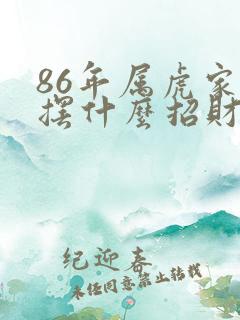 86年属虎家
摆什麼招財
纪迎春
未经同意禁止转载